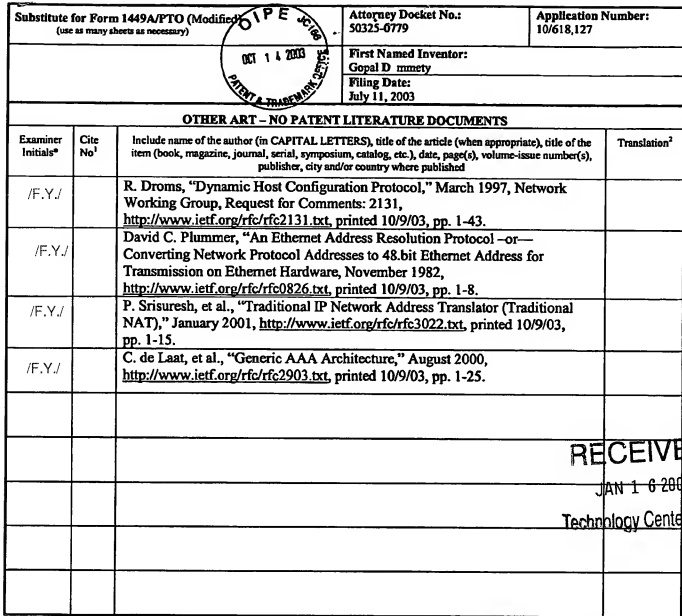 Substitute for Form 1449A/PTO (Modified)
(use as many sheets as necessary)
OIPE JC166
OCT 14 2003
PATENT & TRADEMARK OFFICE
Attorney Docket No.:
50325-0779
Application Number:
10/618,127
First Named Inventor:
Gopal D mmety
Filing Date:
July 11, 2003
OTHER ART – NO PATENT LITERATURE DOCUMENTS
Examiner Initials*
Cite No¹
Include name of the author (in CAPITAL LETTERS), title of the article (when appropriate), title of the
item (book, magazine, journal, serial, symposium, catalog, etc.), date, page(s), volume-issue number(s),
publisher, city and/or country where published
Translation²
/F.Y./
R. Droms, "Dynamic Host Configuration Protocol," March 1997, Network
Working Group, Request for Comments: 2131,
http://www.ietf.org/rfc/rfc2131.txt, printed 10/9/03, pp. 1-43.
/F.Y./
David C. Plummer, "An Ethernet Address Resolution Protocol –or—
Converting Network Protocol Addresses to 48.bit Ethernet Address for
Transmission on Ethernet Hardware, November 1982,
http://www.ietf.org/rfc/rfc0826.txt, printed 10/9/03, pp. 1-8.
/F.Y./
P. Srisuresh, et al., "Traditional IP Network Address Translator (Traditional
NAT)," January 2001, http://www.ietf.org/rfc/rfc3022.txt, printed 10/9/03,
pp. 1-15.
/F.Y./
C. de Laat, et al., "Generic AAA Architecture," August 2000,
http://www.ietf.org/rfc/rfc2903.txt, printed 10/9/03, pp. 1-25.
RECEIVE
JAN 16 200
Technology Cente